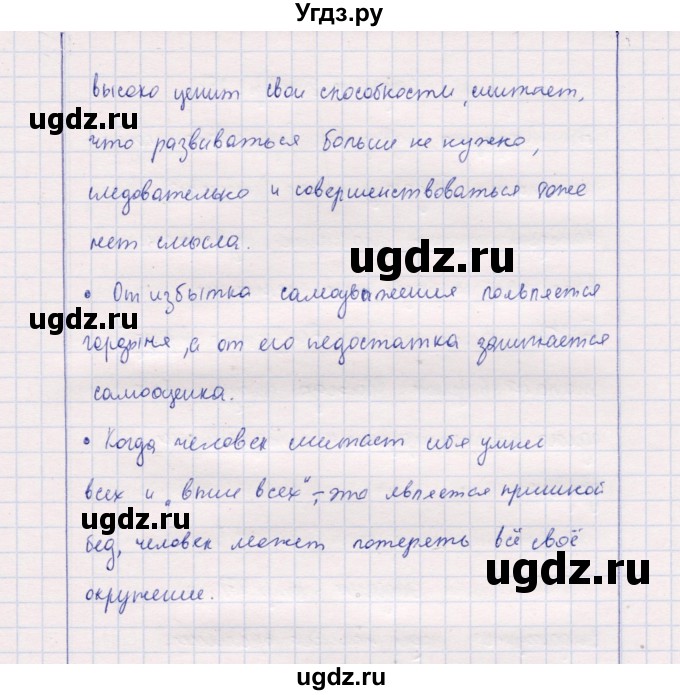 Угдз.ру
высоко ценит свои способности, считает,
ugdz.ru
что развиваться больше не нужно,
следовательно и совершенствоваться тоже
нет смысла.
ugdz.ru
• От избытка самоуважения появляется
ugdz.ru
гордыня, а от его недостатка занижается
самооценка.
• Когда человек считает себя умнее
всех и „выше всех" – это является причиной
ugdz.ru
бед, человек может потерять всё своё
ugdz.ru
окружение.
ugdz.ru